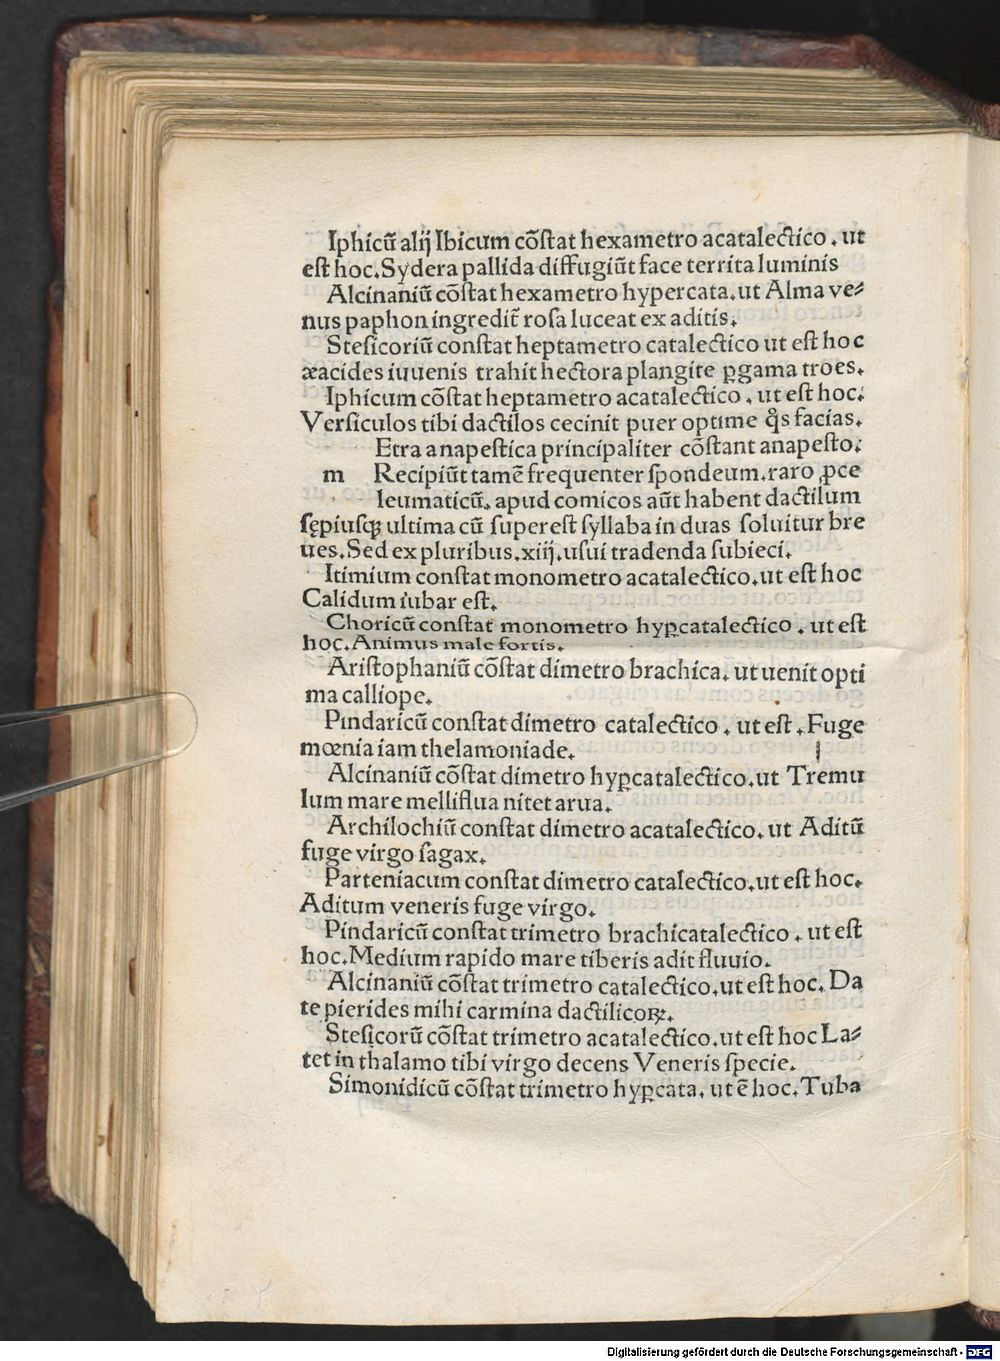 Iphicū alij Ibicum cōſtat hexametro acatalectico. ut
eſt hoc. Sydera pallida diffugiūt face territa luminis
Alcinaniū cōſtat hexametro hypercata. ut Alma ve⸗
nus paphon ingredit̄ roſa luceat ex aditis.
Steſicoriū conſtat heptametro catalectico ut eſt hoc
æacides iuuenis trahit hectora plangite ꝑgama troes.
Iphicum cōſtat heptametro acatalectico. ut eſt hoc:
Verſiculos tibi dactilos cecinit puer optime q̊s facias.
Etra anapeſtica principaliter cōſtant anapeſto:
m Recipiūt tamē frequenter ſpondeum. raro ꝓce
leumaticū. apud comicos aūt habent dactilum
ſępiuſqꝫ ultima cū ſupereſt ſyllaba in duas ſoluitur bre
ues. Sed ex pluribus. xiiij. uſui tradenda ſubieci.
Itimium conſtat monometro acatalectico. ut eſt hoc
Calidum iubar eſt.
Choricū conſtat monometro hyꝑcatalectico. ut eſt
hoc. Animus male fortis.
Ariſtophaniū cōſtat dimetro brachica. ut uenit opti
ma calliope.
Pindaricū conſtat dimetro catalectico. ut eſt. Fuge
mœnia iam thelamoniade.
Alcinaniū cōſtat dimetro hyꝑcatalectico. ut Tremu
lum mare melliflua nitet arua.
Archilochiū conſtat dimetro acatalectico. ut Aditū
fuge virgo ſagax.
Parteniacum conſtat dimetro catalectico. ut eſt hoc.
Aditum veneris fuge virgo.
Pindaricū conſtat trimetro brachicatalectico. ut eſt
hoc. Medium rapido mare tiberis adit fluuio.
Alcinaniū cōſtat trimetro catalectico. ut eſt hoc. Da
te pierides mihi carmina dactilicoꝝ.
Steſicorū cōſtat trimetro acatalectico. ut eſt hoc La⸗
tet in thalamo tibi virgo decens Veneris ſpecie.
Simonidicū cōſtat trimetro hyꝑcata. ut ē hoc. Tuba
Digitalisierung gefördert durch die Deutsche Forschungsgemeinschaft - DFG